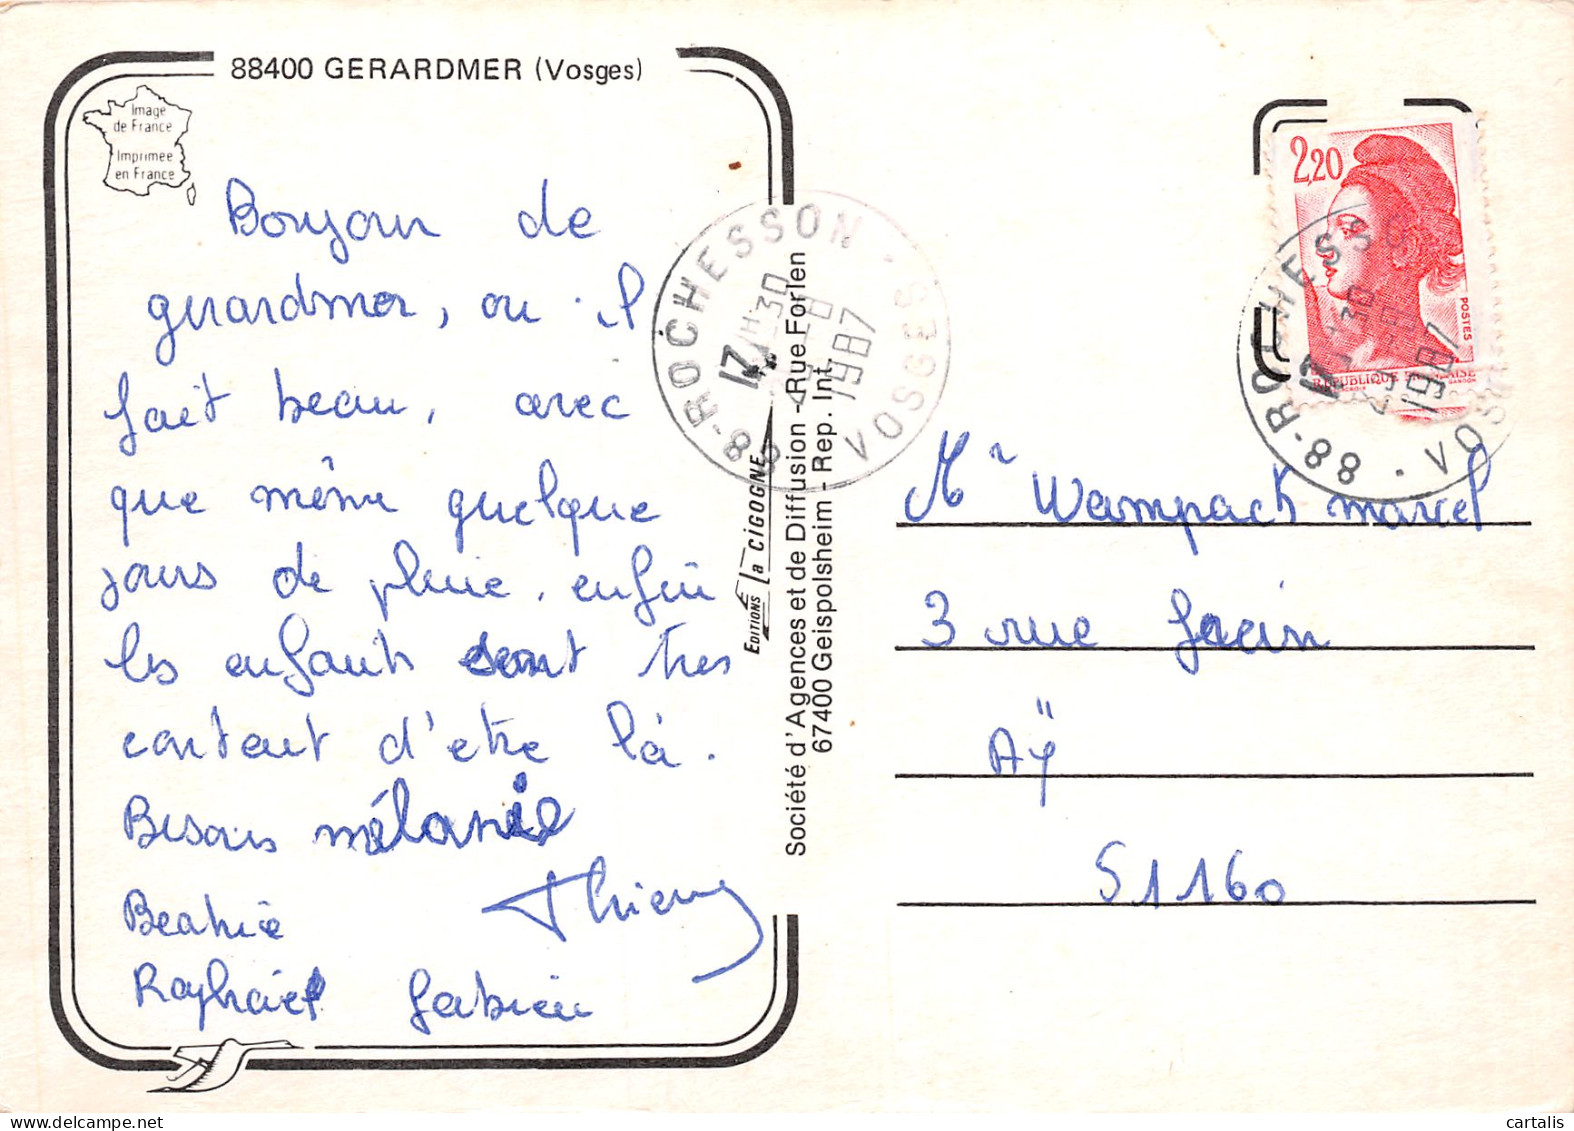 88400 GERARDMER (Vosges)
Image
de France
Imprimee
en France
Bonjour de
gerardmer, ou il
fait beau, avec
que même quelque
jours de pluie. enfin
les enfants sont tres
content d'etre là.
Bisous mélanie
Beatrice Thierry
Raphaël fabien
EDITIONS la CIGOGNE
Société d'Agences et de Diffusion - Rue Forlen
67400 Geispolsheim - Rep. Int.
88-ROCHESSON
17H30
1987
VOSGES
2,20
POSTES
REPUBLIQUE FRANÇAISE
GANDON
88-ROCHESSO
30
1987
VOS
Mr Wampach marcel
3 rue Jacin
AŸ
51160
cartalis